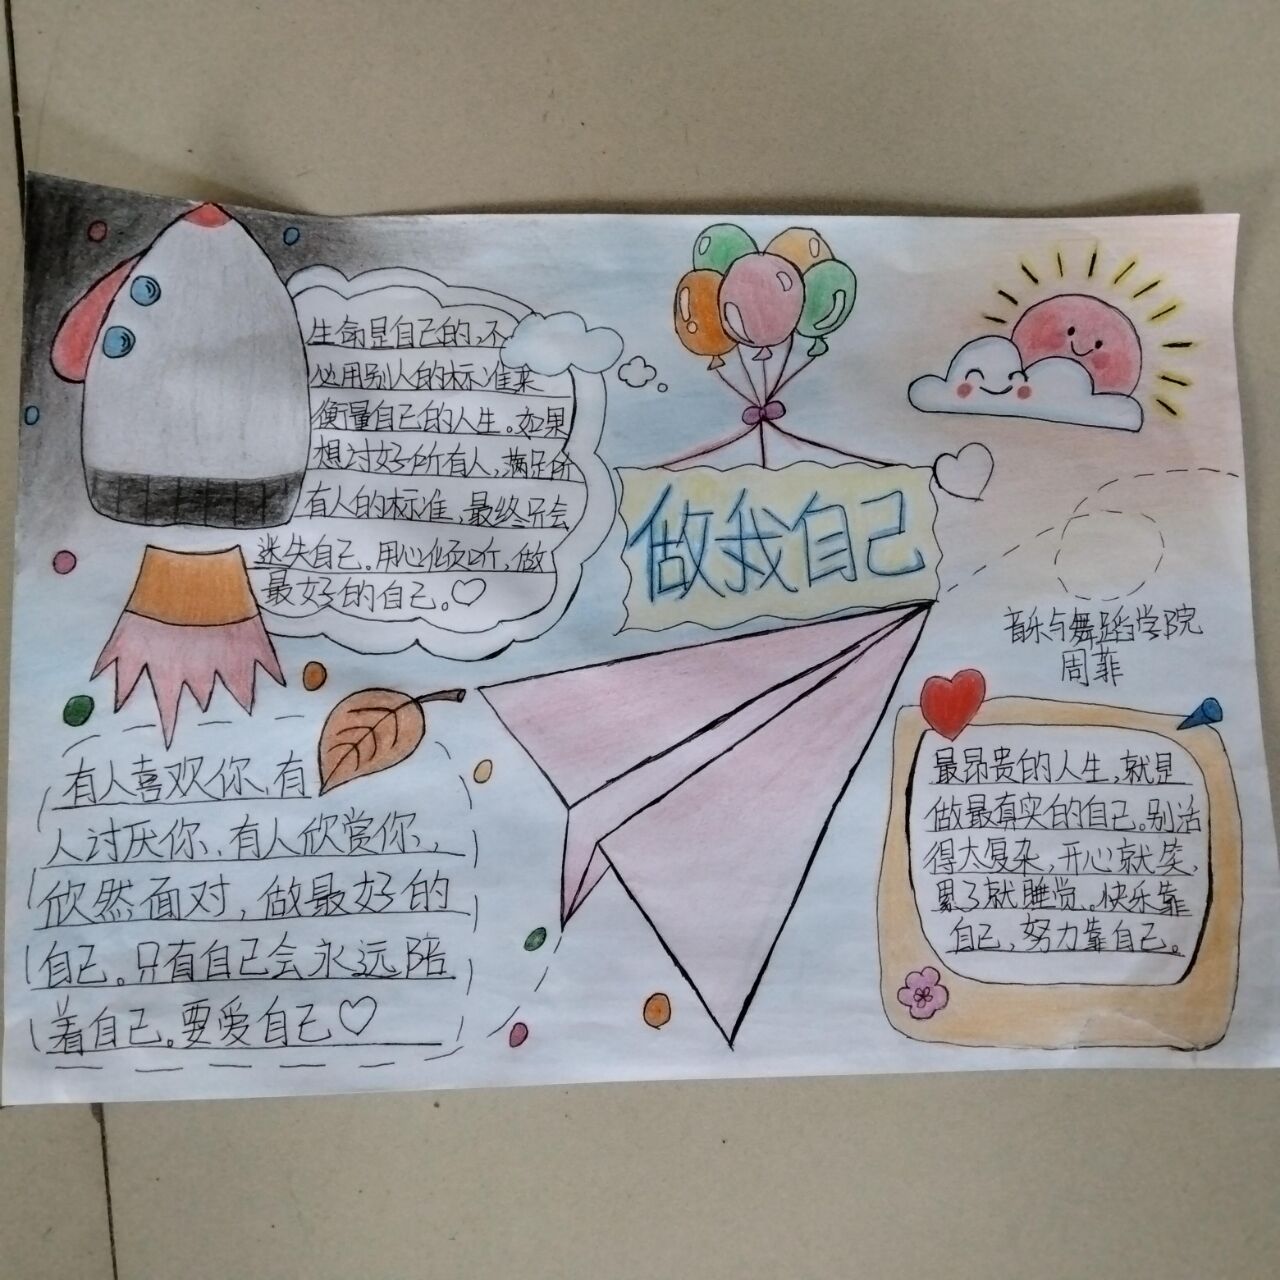 生命是自己的,不
必用别人的标准来
衡量自己的人生。如果
想讨好所有人,满足所
有人的标准,最终只会
迷失自己。用心倾听,做
最好的自己。
做我自己
音乐与舞蹈学院
周菲
有人喜欢你、有
人讨厌你、有人欣赏你,
欣然面对,做最好的
自己。只有自己会永远陪
着自己。要爱自己
最昂贵的人生,就是
做最真实的自己。别活
得太复杂,开心就笑,
累了就睡觉。快乐靠
自己,努力靠自己。